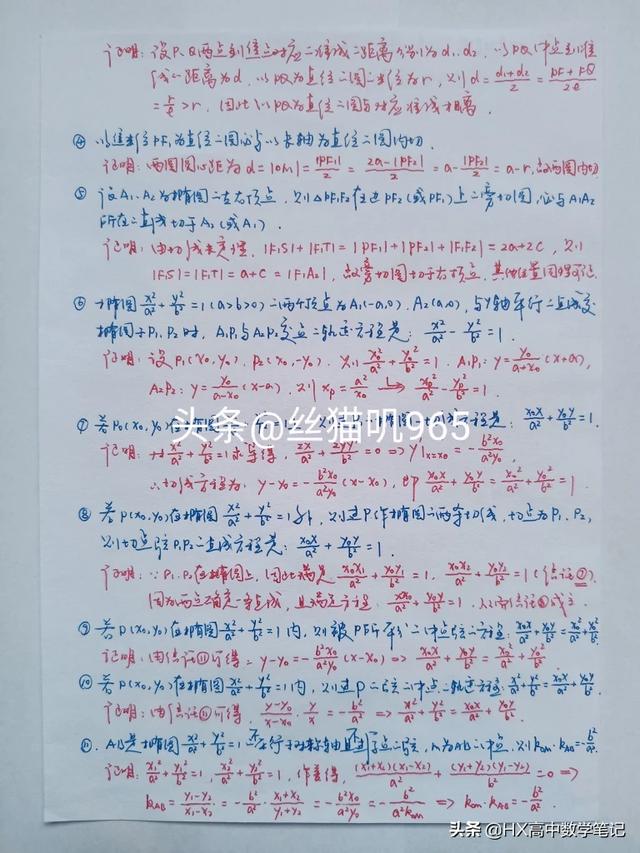 证明：设P、Q两点到焦点对应之准线之距离分别为d₁、d₂，以PQ中点到准
线之距离为d，以PQ为直径之圆之半径为r，则d=(d₁+d₂)/2=(PF+FQ)/2e
=r/e>r，因此以PQ为直径之圆与对应准线相离．
④ 以焦半径PF₁为直径之圆必与以长轴为直径之圆内切．
证明：两圆圆心距为d=|OM|=|PF₂|/2=(2a-|PF₂|)/2=a-|PF₂|/2=a-r，故两圆内切
⑤ 设A₁、A₂为椭圆之左右顶点，则△PF₁F₂在边PF₂(或PF₁)上之旁切圆，必与A₁A₂
所在之直线切于A₂(或A₁)．
证明：由切线长定理，|F₁S|+|F₁T|=|PF₁|+|PF₂|+|F₁F₂|=2a+2c，则
|F₁S|=|F₁T|=a+c=|F₁A₂|，故旁切圆切于右顶点，其他位置同理可证
⑥ 椭圆x²/a²+y²/b²=1(a>b>0)之两个顶点为A₁(-a,0)，A₂(a,0)，与y轴平行之直线交
椭圆于P₁、P₂时，A₁P₁与A₂P₂交点之轨迹方程是：x²/a²-y²/b²=1．
证明：设P₁(x₀,y₀)，P₂(x₀,-y₀)．则x₀²/a²+y₀²/b²=1．A₁P₁：y=y₀/(a+x₀)(x+a)，
A₂P₂：y=y₀/(a-x₀)(x-a)，则xp=a²/x₀ ⇒ xp²/a²-yp²/b²=1．
⑦ 若P₀(x₀,y₀)在椭圆 椭圆之切线方程是：x₀x/a²+y₀y/b²=1．
头条@丝猫叽965
证明：对x²/a²+y²/b²=1求导得，2x/a²+2yy'/b²=0 ⇒ y'|x=x₀=-b²x₀/a²y₀，
∴切线方程为：y-y₀=-b²x₀/a²y₀(x-x₀)，即x₀x/a²+y₀y/b²=x₀²/a²+y₀²/b²=1
⑧ 若P(x₀,y₀)在椭圆x²/a²+y²/b²=1外，则过P作椭圆之两条切线，切点为P₁、P₂，
则切点弦P₁P₂之直线方程是：x₀x/a²+y₀y/b²=1．
证明：∵P₁、P₂在椭圆上，因此满足x₀x₁/a²+y₀y₁/b²=1，x₀x₂/a²+y₀y₂/b²=1(结论⑦)
因为两点确定一条直线，且满足方程：x₀x/a²+y₀y/b²=1．
⑨ 若P(x₀,y₀)在椭圆x²/a²+y²/b²=1内，则被P所平分之中点弦之方程：x₀x/a²+y₀y/b²=x₀²/a²+y₀²/b²
证明：由结论⑪可得：y-y₀=-b²x₀/a²y₀(x-x₀) ⇒ x₀x/a²+y₀y/b²=x₀²/a²+y₀²/b²
⑩ 若P(x₀,y₀)在椭圆x²/a²+y²/b²=1内，则过P之弦之中点之轨迹方程：x²/a²+y²/b²=x₀x/a²+y₀y/b²．
证明：由结论⑪可得，(y-y₀)/(x-x₀)·y/x=-b²/a² ⇒ x²/a²+y²/b²=x₀x/a²+y₀y/b²．
⑪ AB是椭圆x²/a²+y²/b²=1不平行于对称轴且不过原点之弦，M为AB之中点，则kOM·kAB=-b²/a²
证明：x₁²/a²+y₁²/b²=1，x₂²/a²+y₂²/b²=1，作差得，(x₁+x₂)(x₁-x₂)/a²+(y₁+y₂)(y₁-y₂)/b²=0 ⇒
kAB=(y₁-y₂)/(x₁-x₂)=-b²/a²·(x₁+x₂)/(y₁+y₂)=-b²x₀/a²y₀=-b²/a²kOM ⇒ kOM·kAB=-b²/a²．
头条 @HX高中数学笔记